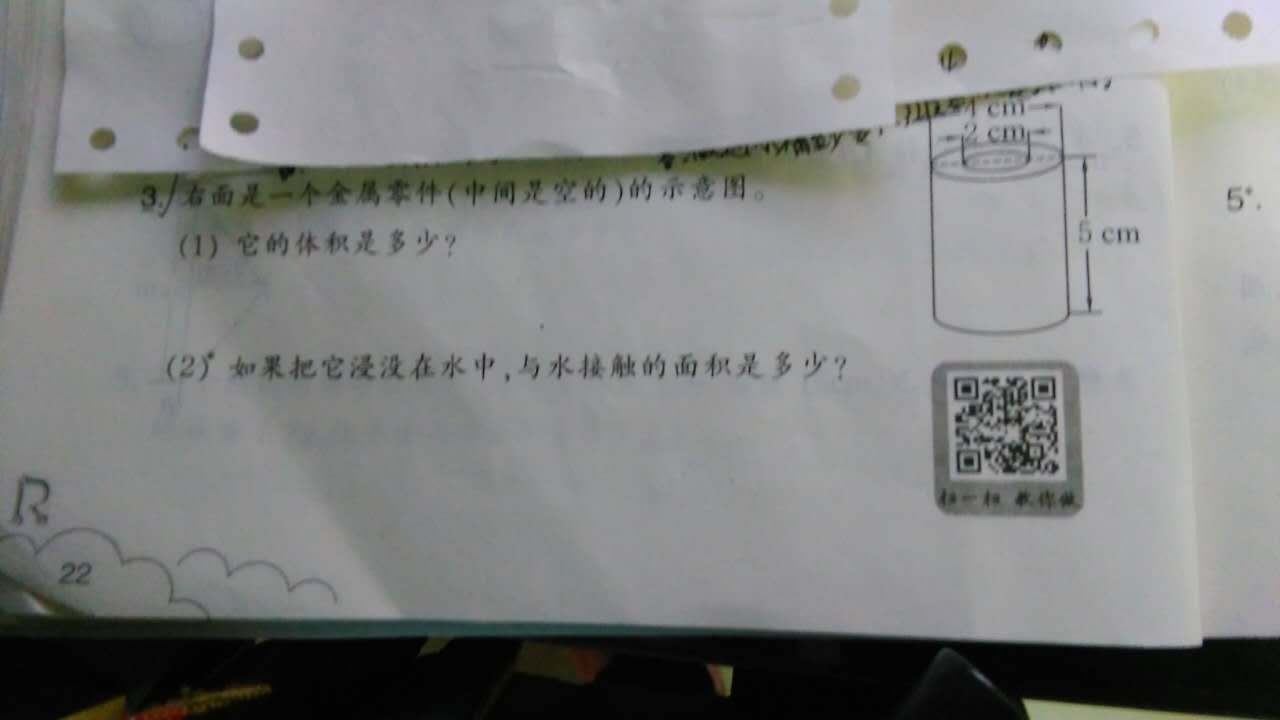 4 cm
2 cm
3. 右面是一个金属零件(中间是空的)的示意图。
(1) 它的体积是多少?
5 cm
(2)* 如果把它浸没在水中,与水接触的面积是多少?
扫一扫 教你做
R
22
5*.